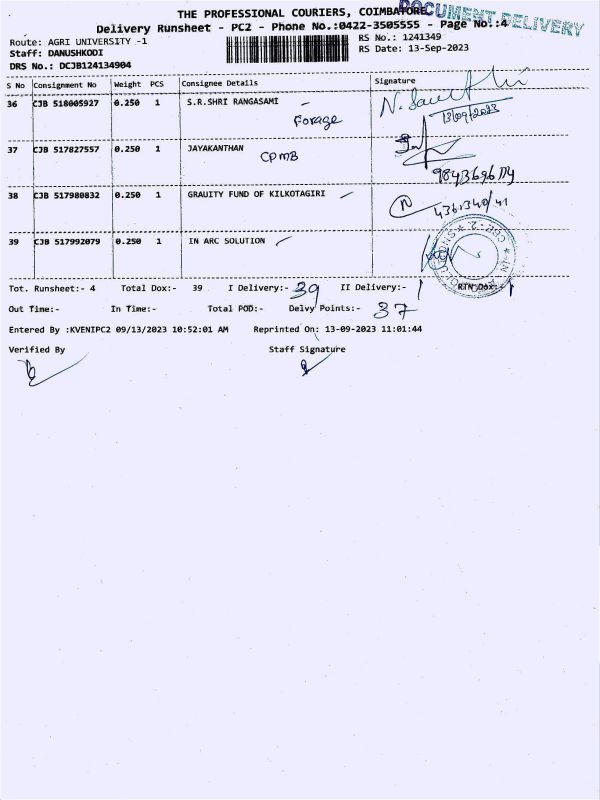 THE PROFESSIONAL COURIERS, COIMBATORE
DOCUMENT DELIVERY
Delivery Runsheet - PC2 - Phone No.:0422-3505555 - Page No.:4
Route: AGRI UNIVERSITY -1
RS No.: 1241349
Staff: DANUSHKODI
RS Date: 13-Sep-2023
DRS No.: DCJB124134904
S No Consignment No Weight PCS Consignee Details Signature
36 CJB 518005927 0.250 1 S.R.SHRI RANGASAMI
Forage
13/09/2023
37 CJB 517827557 0.250 1 JAYAKANTHAN
CPMB
38 CJB 517980832 0.250 1 GRAUITY FUND OF KILKOTAGIRI
39 CJB 517992079 0.250 1 IN ARC SOLUTION
Tot. Runsheet:- 4 Total Dox:- 39 I Delivery:- 39 II Delivery:- RTN Dox:-
Out Time:- In Time:- Total POD:- Delvy Points:- 37
Entered By :KVENIPC2 09/13/2023 10:52:01 AM Reprinted On: 13-09-2023 11:01:44
Verified By Staff Signature